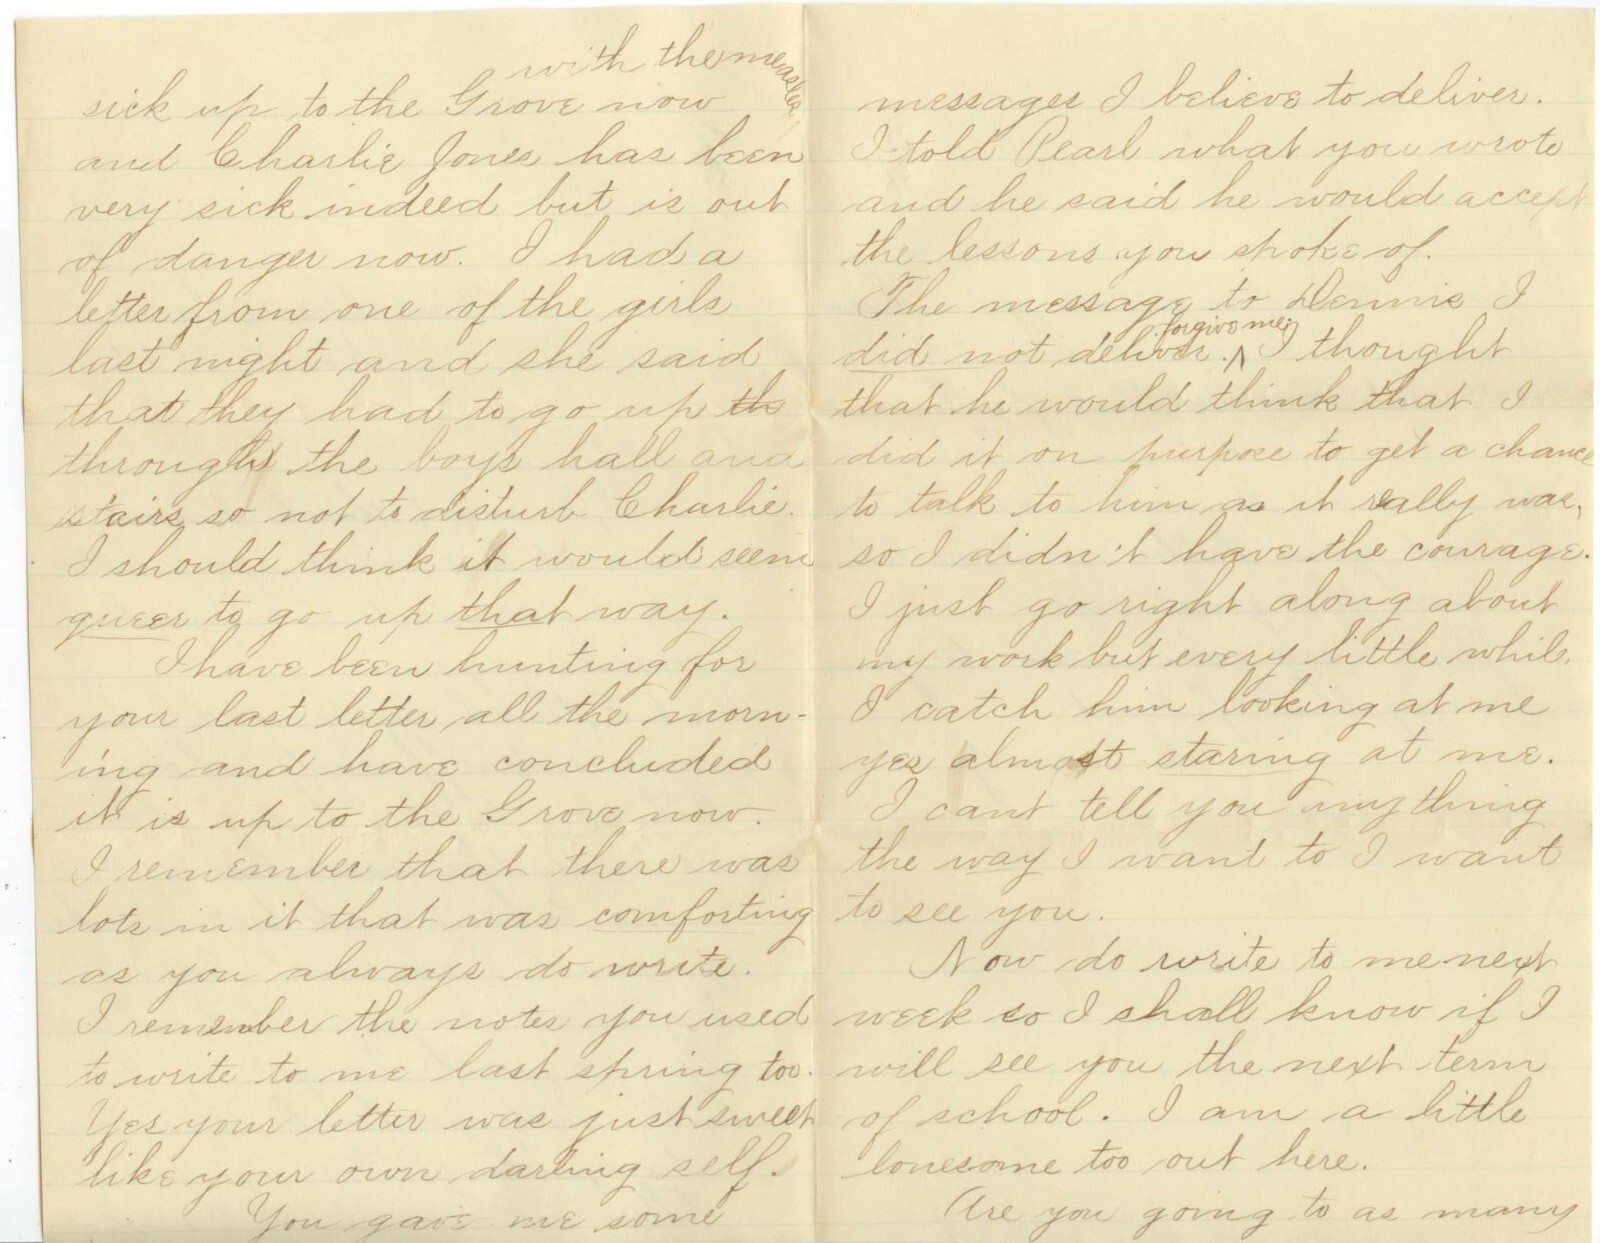 with the measles
sick up to the Grove now
and Charlie Jones has been
very sick indeed but is out
of danger now. I had a
letter from one of the girls
last night and she said
that they had to go up th
through the boys hall and
stairs so not to disturb Charlie.
I should think it would seem
queer to go up that way.
I have been hunting for
your last letter all the morn-
ing and have concluded
it is up to the Grove now.
I remember that there was
lots in it that was comforting
as you always do write.
I remember the notes you used
to write to me last spring too.
Yes your letter was just sweet
like your own darling self.
You gave me some
messages I believe to deliver.
I told Pearl what you wrote
and he said he would accept
the lessons you spoke of.
The message to Dennis I
forgive me;
did not deliver. ^ I thought
that he would think that I
did it on purpose to get a chance
to talk to him as it really was,
so I didn't have the courage.
I just go right along about
my work but every little while
I catch him looking at me
yes almost staring at me.
I cant tell you anything
the way I want to I want
to see you.
Now do write to me next
week so I shall know if I
will see you the next term
of school. I am a little
lonesome too out here.
Are you going to as many